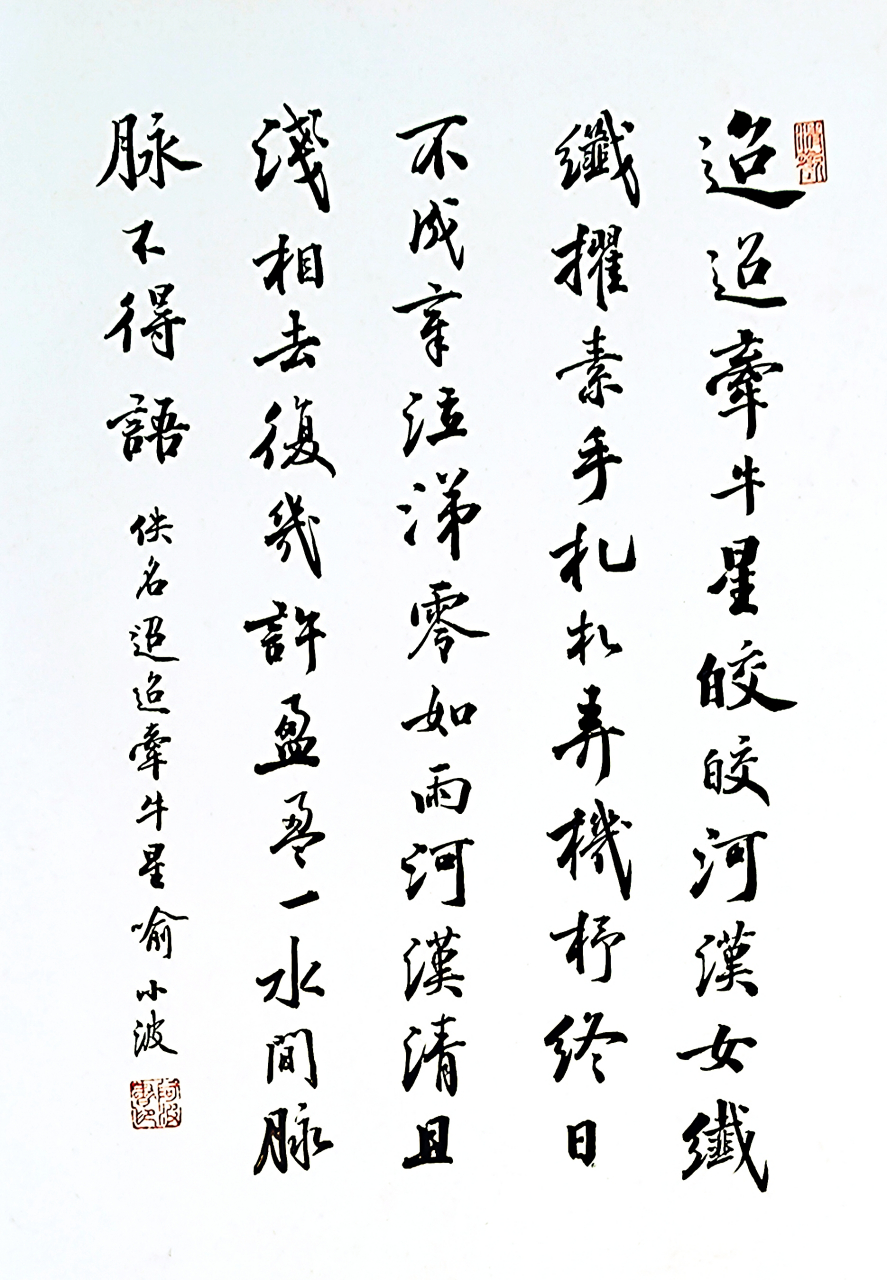 迢迢牽牛星皎皎河漢女纖
纖擢素手札札弄機杼終日
不成章泣涕零如雨河漢清且
淺相去復幾許盈盈一水間脉
脉不得語 佚名迢迢牽牛星喻小波